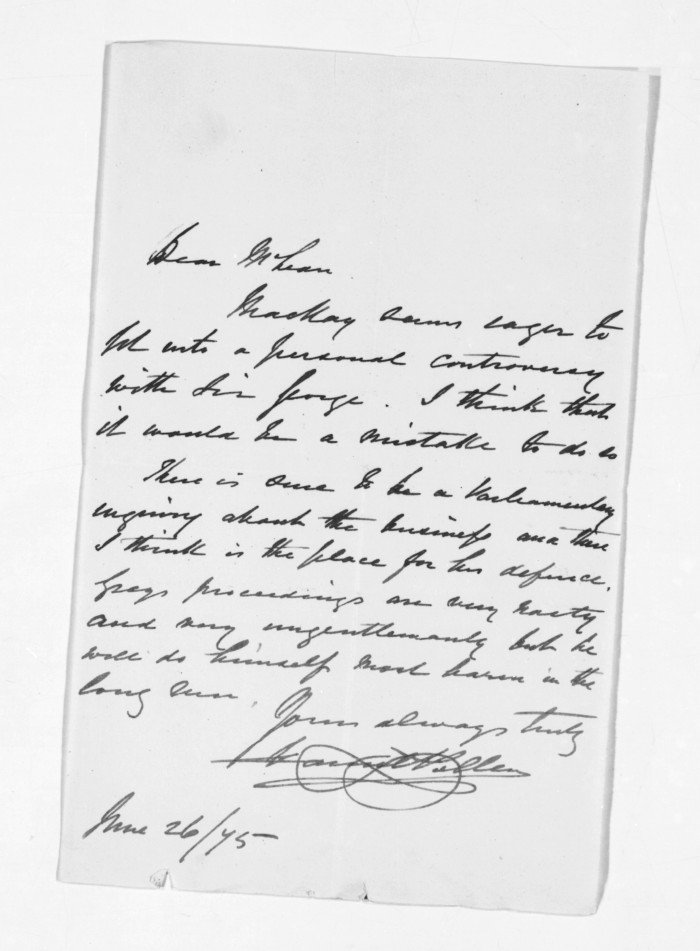 Dear McLean
Mackay seems eager to
get into a personal controversy
with Sir George. I think that
it would be a mistake to do so
There is sure to be a Parliamentary
inquiry about the business and there
I think is the place for his defence.
Greys proceedings are very nasty
and very ungentlemanly but he
will do himself most harm in the
long run.
Yours always truly
Daniel Pollen
June 26/75